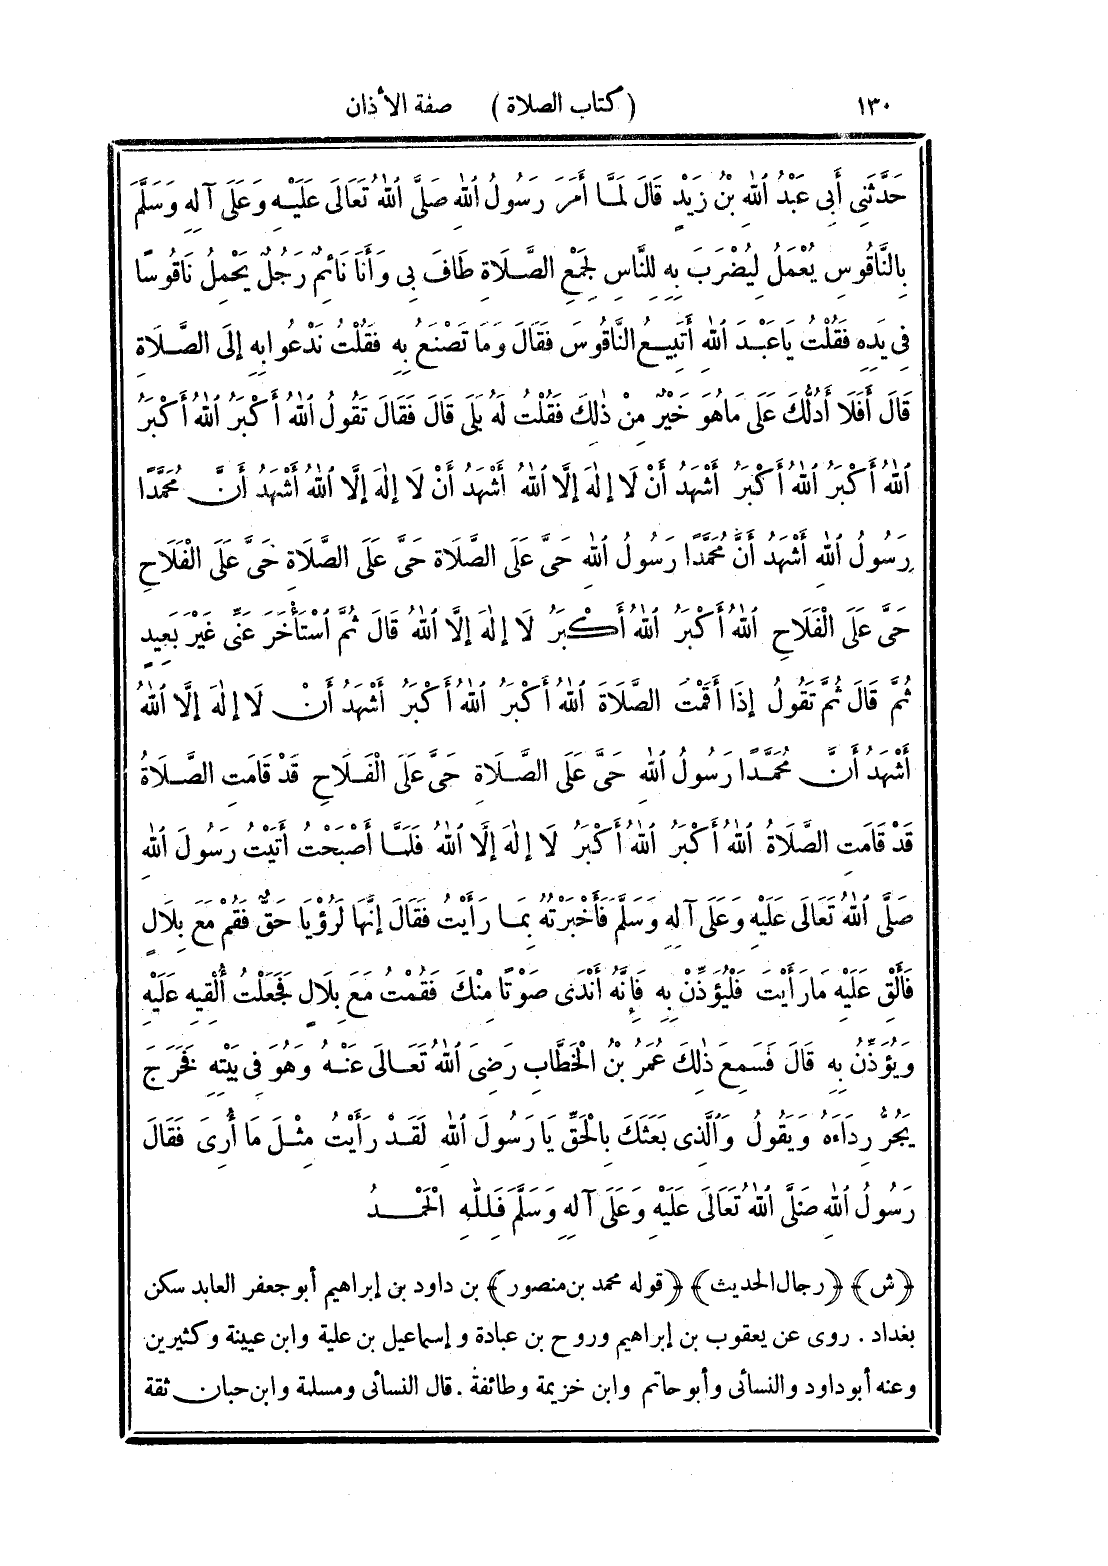 ١٣٠ (كتاب الصلاة) صفة الأذان
حَدَّثَنِي أَبِي عَبْدُ اللهِ بْنُ زَيْدٍ قَالَ لَمَّا أَمَرَ رَسُولُ اللهِ صَلَّى اللهُ تَعَالَى عَلَيْهِ وَعَلَى آلِهِ وَسَلَّمَ
بِالنَّاقُوسِ يُعْمَلُ لِيُضْرَبَ بِهِ لِلنَّاسِ لِجَمْعِ الصَّلَاةِ طَافَ بِي وَأَنَا نَائِمٌ رَجُلٌ يَحْمِلُ نَاقُوسًا
فِي يَدِهِ فَقُلْتُ يَا عَبْدَ اللهِ أَتَبِيعُ النَّاقُوسَ فَقَالَ وَمَا تَصْنَعُ بِهِ فَقُلْتُ نَدْعُوا بِهِ إِلَى الصَّلَاةِ
قَالَ أَفَلَا أَدُلُّكَ عَلَى مَا هُوَ خَيْرٌ مِنْ ذٰلِكَ فَقُلْتُ لَهُ بَلَى قَالَ فَقَالَ تَقُولُ اللهُ أَكْبَرُ اللهُ أَكْبَرُ
اللهُ أَكْبَرُ اللهُ أَكْبَرُ أَشْهَدُ أَنْ لَا إِلٰهَ إِلَّا اللهُ أَشْهَدُ أَنْ لَا إِلٰهَ إِلَّا اللهُ أَشْهَدُ أَنَّ مُحَمَّدًا
رَسُولُ اللهِ أَشْهَدُ أَنَّ مُحَمَّدًا رَسُولُ اللهِ حَيَّ عَلَى الصَّلَاةِ حَيَّ عَلَى الصَّلَاةِ حَيَّ عَلَى الْفَلَاحِ
حَيَّ عَلَى الْفَلَاحِ اللهُ أَكْبَرُ اللهُ أَكْبَرُ لَا إِلٰهَ إِلَّا اللهُ قَالَ ثُمَّ اسْتَأْخَرَ عَنِّي غَيْرَ بَعِيدٍ
ثُمَّ قَالَ ثُمَّ تَقُولُ إِذَا أَقَمْتَ الصَّلَاةَ اللهُ أَكْبَرُ اللهُ أَكْبَرُ أَشْهَدُ أَنْ لَا إِلٰهَ إِلَّا اللهُ
أَشْهَدُ أَنَّ مُحَمَّدًا رَسُولُ اللهِ حَيَّ عَلَى الصَّلَاةِ حَيَّ عَلَى الْفَلَاحِ قَدْ قَامَتِ الصَّلَاةُ
قَدْ قَامَتِ الصَّلَاةُ اللهُ أَكْبَرُ اللهُ أَكْبَرُ لَا إِلٰهَ إِلَّا اللهُ فَلَمَّا أَصْبَحْتُ أَتَيْتُ رَسُولَ اللهِ
صَلَّى اللهُ تَعَالَى عَلَيْهِ وَعَلَى آلِهِ وَسَلَّمَ فَأَخْبَرْتُهُ بِمَا رَأَيْتُ فَقَالَ إِنَّهَا لَرُؤْيَا حَقٌّ فَقُمْ مَعَ بِلَالٍ
فَأَلْقِ عَلَيْهِ مَا رَأَيْتَ فَلْيُؤَذِّنْ بِهِ فَإِنَّهُ أَنْدَى صَوْتًا مِنْكَ فَقُمْتُ مَعَ بِلَالٍ فَجَعَلْتُ أُلْقِيهِ عَلَيْهِ
وَيُؤَذِّنُ بِهِ قَالَ فَسَمِعَ ذٰلِكَ عُمَرُ بْنُ الْخَطَّابِ رَضِيَ اللهُ تَعَالَى عَنْهُ وَهُوَ فِي بَيْتِهِ فَخَرَجَ
يَجُرُّ رِدَاءَهُ وَيَقُولُ وَالَّذِي بَعَثَكَ بِالْحَقِّ يَا رَسُولَ اللهِ لَقَدْ رَأَيْتُ مِثْلَ مَا أُرِيَ فَقَالَ
رَسُولُ اللهِ صَلَّى اللهُ تَعَالَى عَلَيْهِ وَعَلَى آلِهِ وَسَلَّمَ فَلِلّٰهِ الْحَمْدُ
﴿ش﴾ ﴿رجال الحديث﴾ ﴿قوله محمد بن منصور﴾ بن داود بن إبراهيم أبو جعفر العابد سكن
بغداد. روى عن يعقوب بن إبراهيم وروح بن عبادة وإسماعيل بن علية وابن عيينة وكثيرين
وعنه أبو داود والنسائى وأبو حاتم وابن خزيمة وطائفة. قال النسائى ومسلمة وابن حبان ثقة